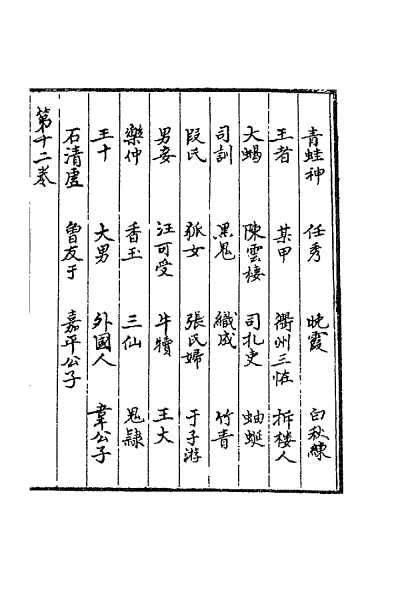 青蛙神　任秀　晚霞　白秋練
王者　某甲　衢州三怪　拆楼人
大蝎　陳雲棲　司札吏　蚰蜒
司訓　黑鬼　織成　竹青
段氏　狐女　張氏婦　于子游
男妾　汪可受　牛犢　王大
樂仲　香玉　三仙　鬼隷
王十　大男　外國人　韋公子
石清虛　曾友于　嘉平公子
第十二卷